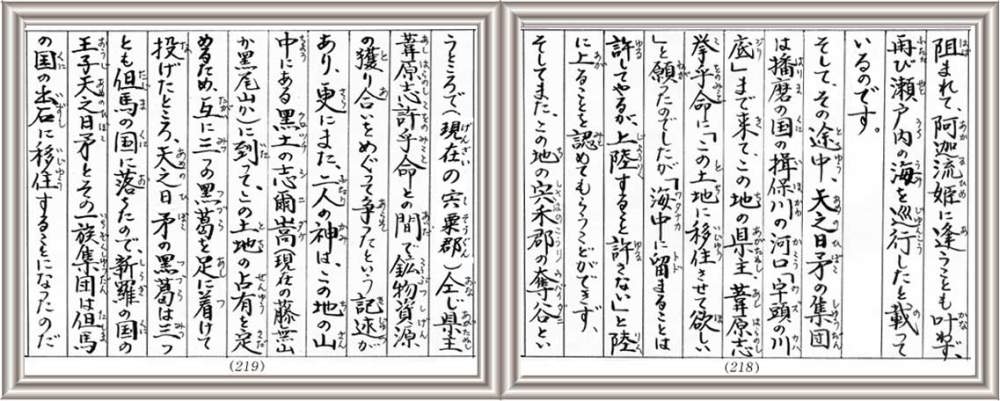 阻まれて、阿迦流姫に逢うことも叶わず、
再び瀬戸内の海を巡行したと載って
いるのです。
そして、その途中、天之日矛の集団
は播磨の国の揖保川の河口「宇頭の川
底」まで来て、この地の県主、葦原志
挙乎命に「この土地に移住させて欲しい
」と願ったのでしたが「海中に留まることは
許してやるが、上陸すること許さない」と陸
に上ることを認めてもらうことができず、
そしてまた、この地の宍禾郡の奪谷と
(218)
うところで(現在の宍粟郡)仝じ県主
葦原志許乎命との間で鉱物資源
の獲り合いをめぐって争ったという記述が
あり、更にまた、二人の神は、この地の山
中にある黒土の志爾嵩(現在の藤無山
か黒尾山か)に到って、この土地の占有を定
めるため、互に三つの黒葛を足に着けて
投げたところ、天之日矛の黒葛は三つ
とも但馬の国に落ちたので、新羅の国の
王子天之日矛とその一族集団は但馬
の国の出石に移住することになったのだ
(219)